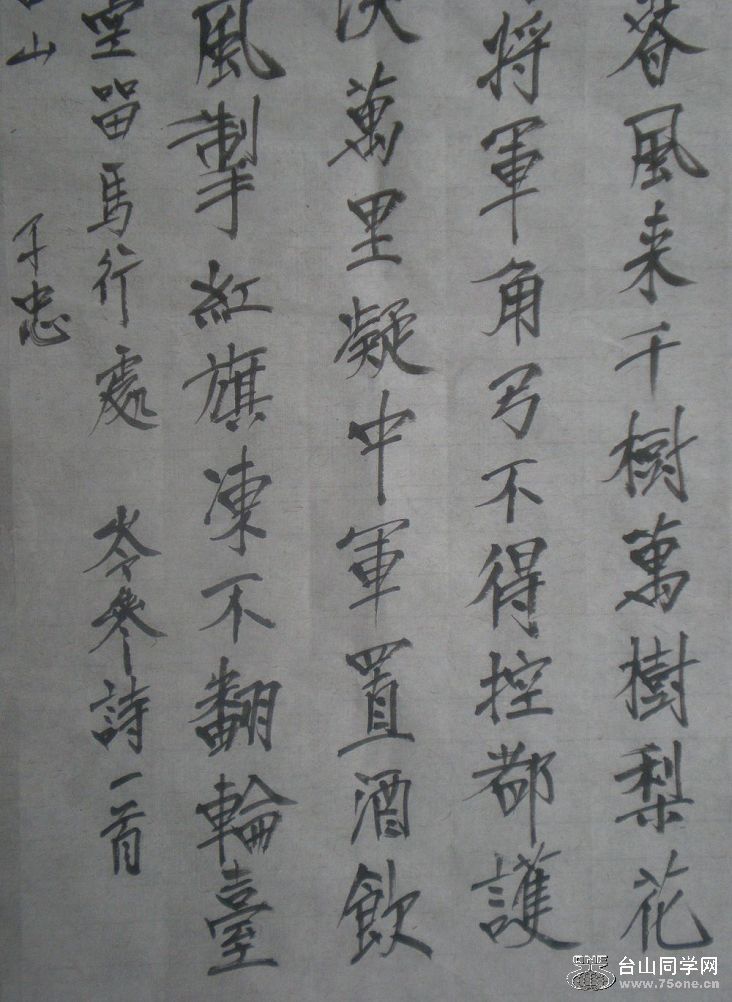 春風来千樹萬樹梨花
將軍角弓不得控都護
淡萬里凝中軍置酒飲
風掣紅旗凍不翻輪臺
空留馬行處 岑參詩一首
山 于忠
台山同学网
www.75one.cn